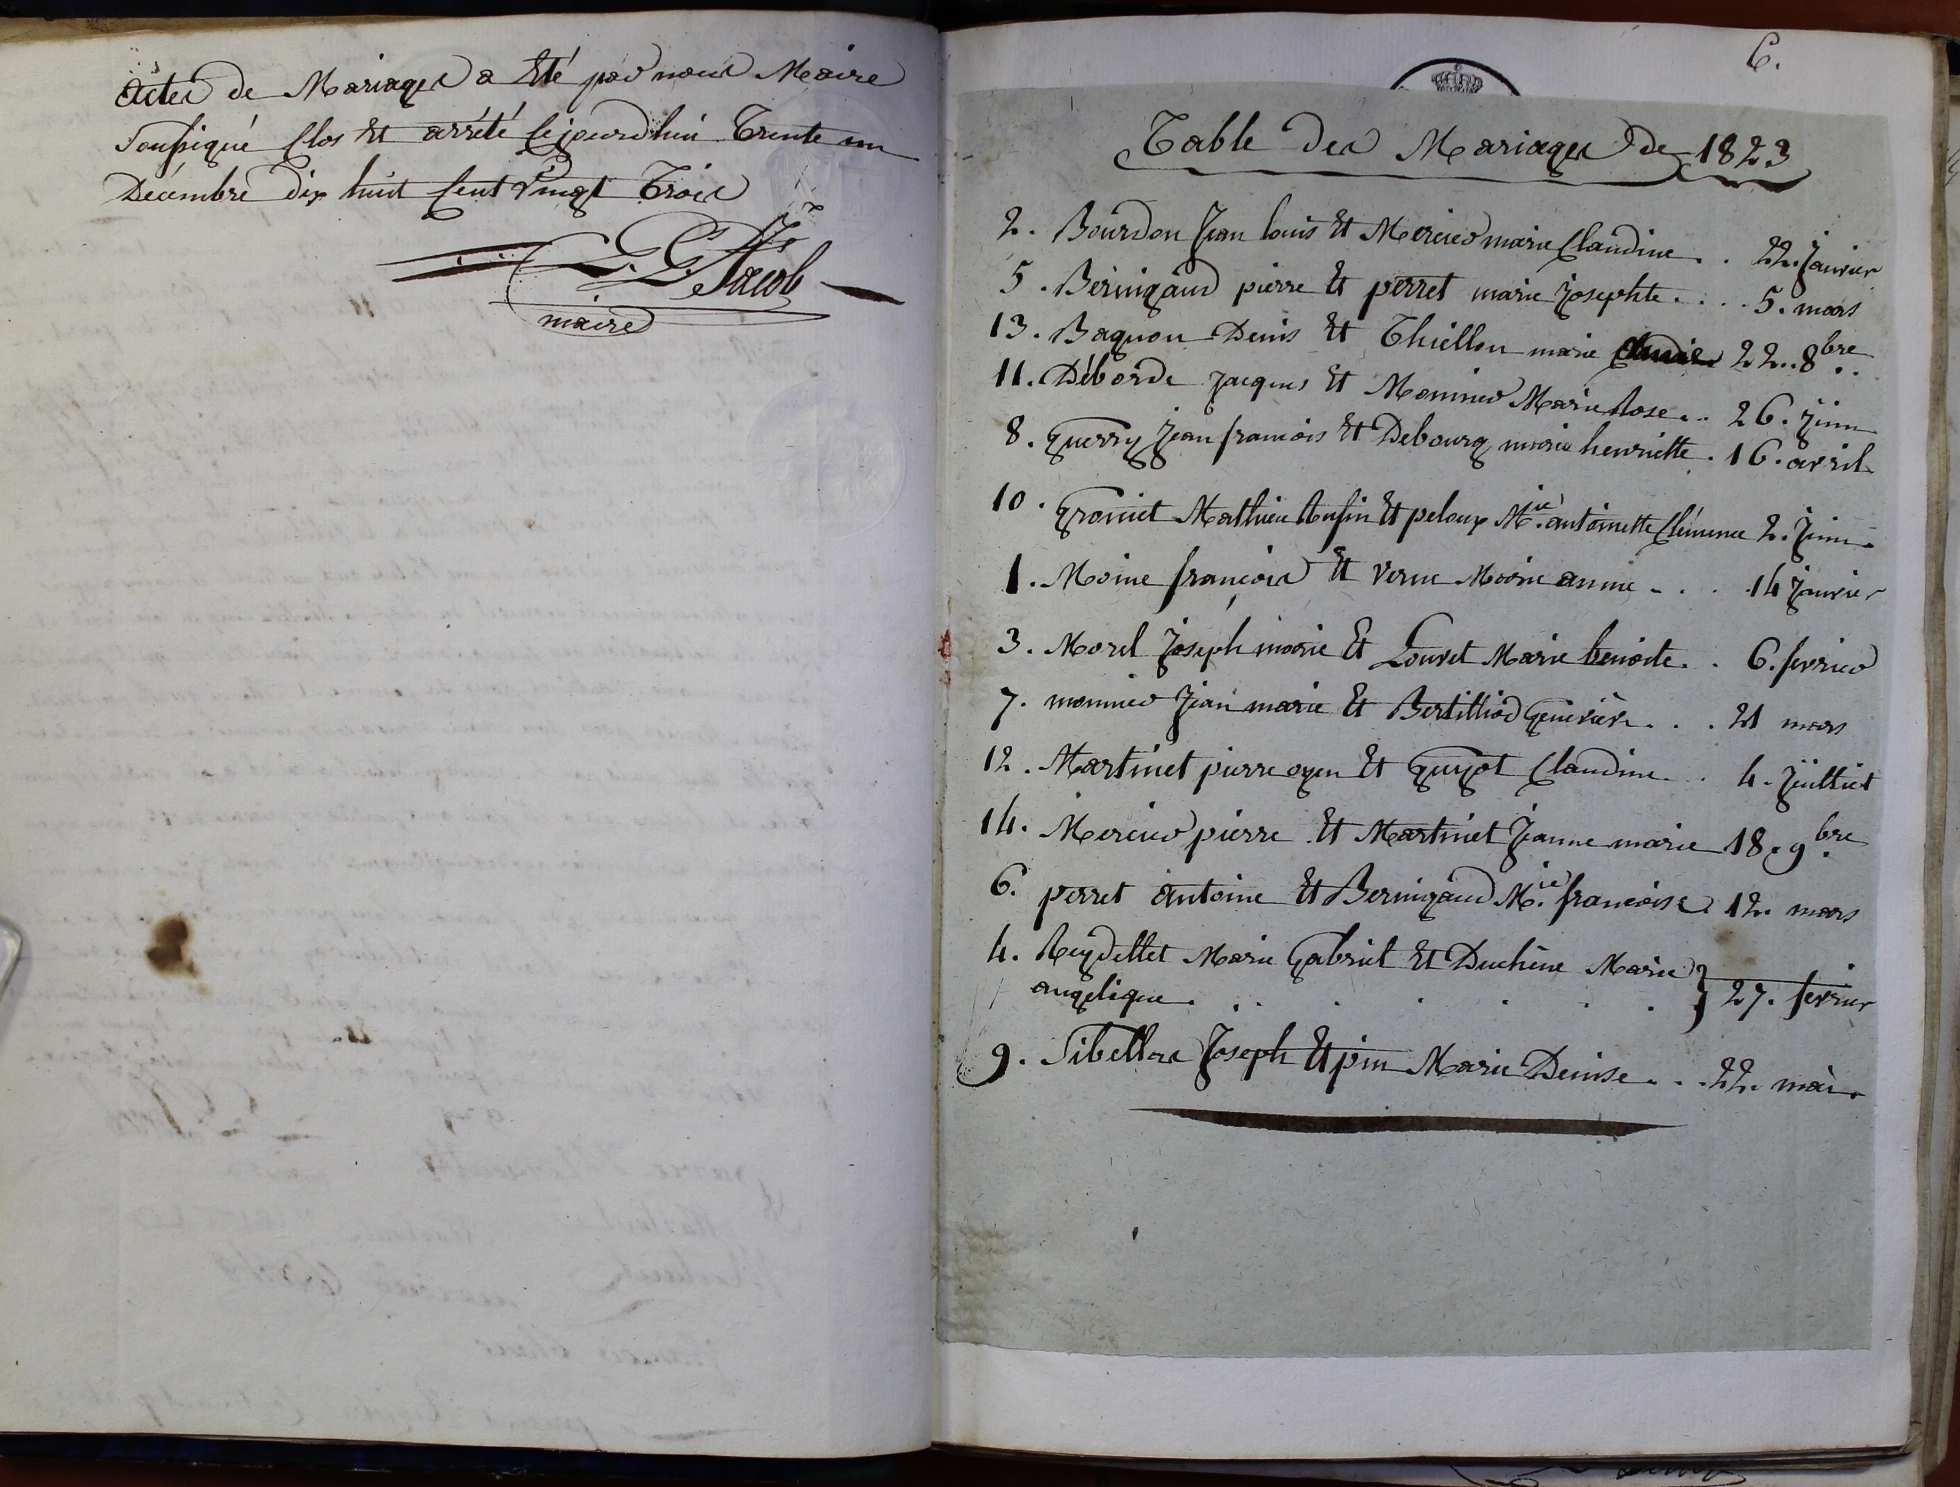 actes de Mariages a Eté par nous Maire
soussigné Clos Et arrêté Cejourdhui Trente un
Décembre dix huit Cent Vingt Trois
Jacob
maire
6.
Table Des Mariages de 1823
2. Bourdon Jean louis Et Mercier marie Claudine .. 22. Janvier
5. Bérnigaud pierre Et perret marie Josephte .... 5. mars
13. Bagnon Denis Et Thiellon marie 22. 8bre
11. Déborde Jacques Et Monnier Marie Rose .. 26. Juin
8. guerry Jean francois Et Debourg marie henriette . 16. avril
10. gromiet Mathieu Et peloux M.ie antoinette Clémence 2. Juin
1. Moine françois Et verne Marie anne ... 14 Janvier
3. Morel Joseph marie Et Louvet Marie benoite .. 6. fevrier
7. monnier Jean marie Et Bertilliod Geneviève ... 21 mars
12. Martinet pierre oyen Et guyot Claudine .. 4. Juillet
14. Mercier pierre Et Martinet Jeanne marie 18. 9bre
6. perret antoine Et Bernigaud M.ie francoise . 12. mars
4. Reydellet Marie Gabriel Et Duchêne Marie
angelique . . . . . . . } 27. fevrier
9. Sibellas Joseph Et pin Marie Denise ... 22. mai.